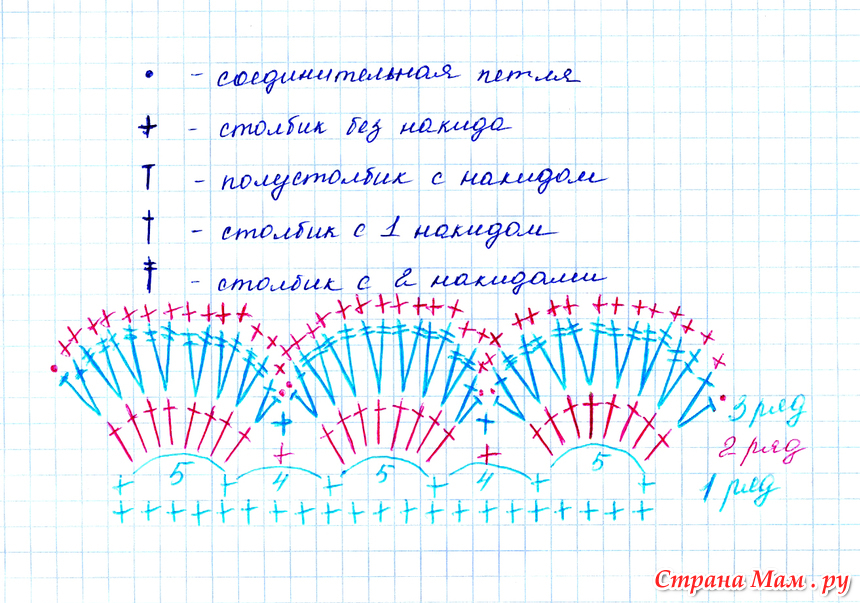 • - соединительная петля
+ - столбик без накида
т - полустолбик с накидом
† - столбик с 1 накидом
‡ - столбик с 2 накидами
3 ряд
2 ряд
5 4 5 4 5
1 ряд
Страна Мам.ру